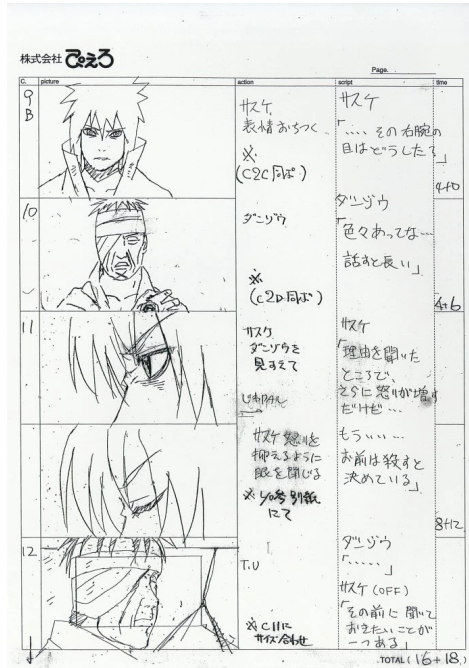 株式会社 ぴえろ
Page.
C. picture action script time
9
B
サスケ
表情おちつく
※
(C2C同ポ)
サスケ
「‥‥その右腕の
目はどうした?」
4+0
10
ダンゾウ
※
(C2D同ポ)
ダンゾウ
「色々あってな‥‥
話すと長い」
4+6
11
サスケ
ダンゾウを
見すえて
サスケ
「理由を聞いた
ところで、
さらに怒りが増す
だけだ‥‥
サスケ 怒りを
抑えるように
眼を閉じる
にて
もういい‥‥
お前は殺すと
決めている」
8+12
12
T.U
※C11に
サイズ合わせ
ダンゾウ
「‥‥‥」
サスケ(OFF)
「その前に聞いて
おきたいことが
一つある」
TOTAL (16+18)